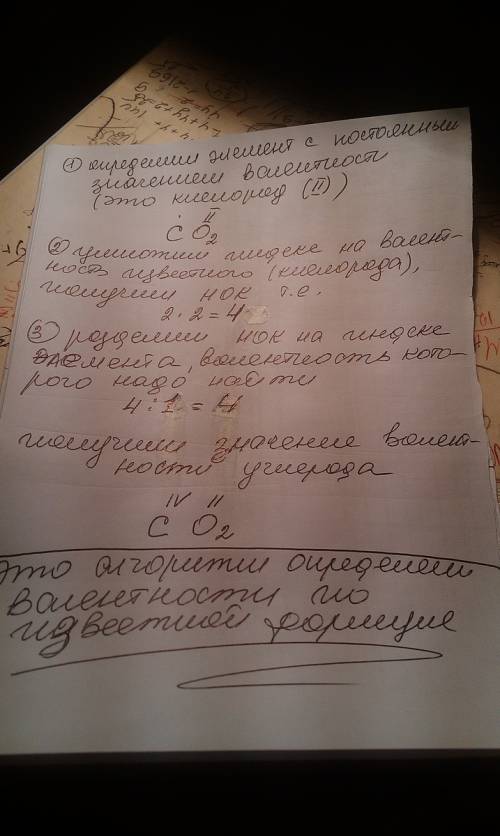 ① определим элемент с постоянным
значением валентности
(это кислород (II))
II
C O2
② умножим индекс на валент-
ность известного (кислорода),
получим НОК т.е.
2 · 2 = 4
③ разделим НОК на индекс
элемента, валентность кото-
рого надо найти
4 : 1 = 4
получим значение валент-
ности углерода
IV II
C O2
Это алгоритм определен
валентности по
известной формуле